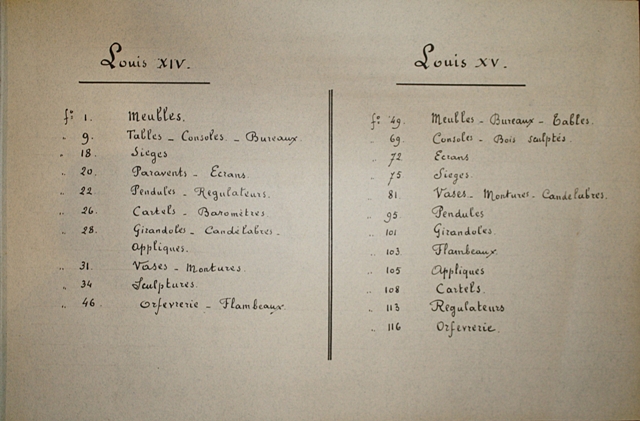 Louis XIV.
f° 1. Meubles.
" 9. Tables - Consoles - Bureaux.
" 18. Sieges
" 20. Paravents - Ecrans.
" 22. Pendules - Regulateurs.
" 26. Cartels - Baromètres.
" 28. Girandoles - Candélabres -
Appliques.
" 31. Vases - Montures.
" 34 Sculptures.
" 46 Orfevrerie - Flambeaux.
Louis XV.
f° 49. Meubles - Bureaux - Tables.
" 69. Consoles - Bois sculptés.
" 72 Ecrans.
" 75 Sieges.
" 81. Vases - Montures - Candelabres.
" 95. Pendules
" 101 Girandoles.
" 103. Flambeaux.
" 105 Appliques
" 108 Cartels.
" 113 Regulateurs
" 116 Orfevrerie.